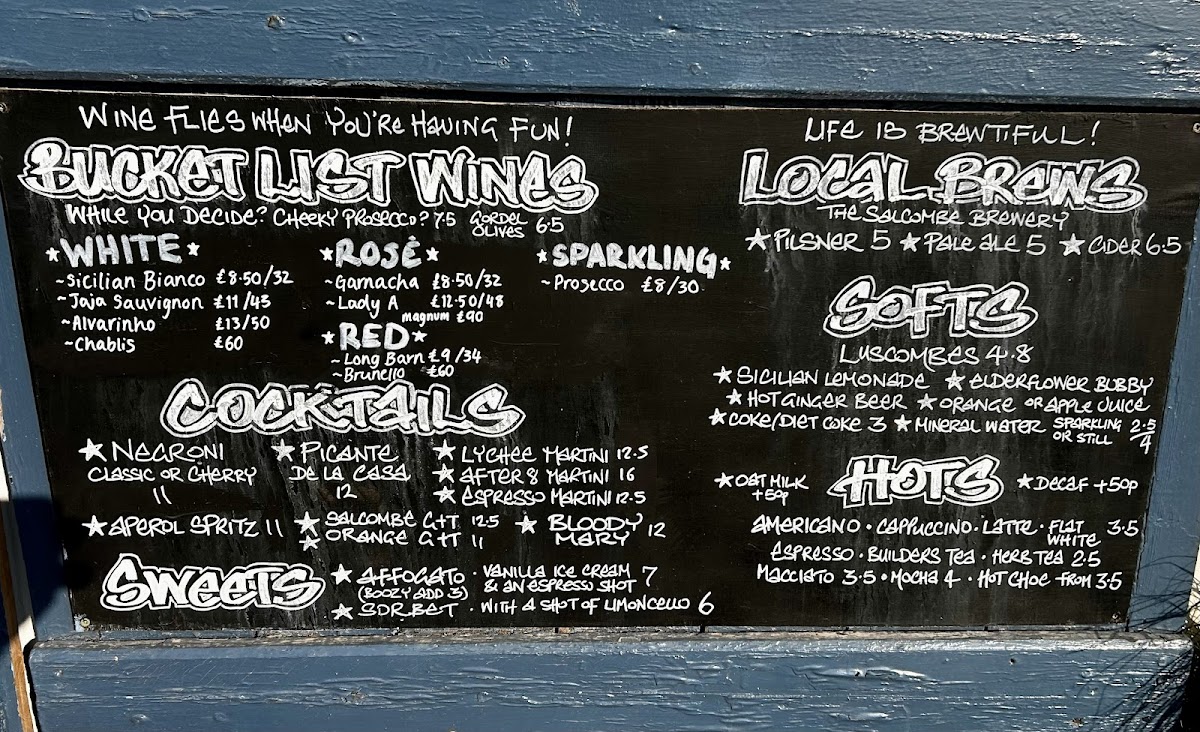 WINE FLIES WHEN YOU'RE HAVING FUN!
BUCKET LIST WINES
WHILE YOU DECIDE? CHEEKY PROSECCO? 7.5 GORDEL OLIVES 6.5
*WHITE*
~Sicilian Bianco £8.50/32
~Jaja Sauvignon £11/43
~Alvarinho £13/50
~Chablis £60
*ROSÉ*
~Garnacha £8.50/32
~Lady A £12.50/48
magnum £90
*RED*
~Long Barn £9/34
~Brunello £60
*SPARKLING*
~Prosecco £8/30
COCKTAILS
★ NEGRONI
CLASSIC OR CHERRY
11
★ PICANTE
DE LA CASA
12
★ LYCHEE MARTINI 12.5
★ AFTER 8 MARTINI 16
★ ESPRESSO MARTINI 12.5
★ APEROL SPRITZ 11
★ SALCOMBE G+T 12.5
★ ORANGE G+T 11
★ BLOODY MARY 12
SWEETS
★ AFFOGATO · VANILLA ICE CREAM 7
(BOOZY ADD 3) & AN ESPRESSO SHOT
★ SORBET · WITH A SHOT OF LIMONCELLO 6
LIFE IS BREWTIFUL!
LOCAL BREWS
THE SALCOMBE BREWERY
★ PILSNER 5 ★ PALE ALE 5 ★ CIDER 6.5
SOFTS
LUSCOMBES 4.8
★ SICILIAN LEMONADE ★ ELDERFLOWER BUBBY
★ HOT GINGER BEER ★ ORANGE OR APPLE JUICE
★ COKE/DIET COKE 3 ★ MINERAL WATER SPARKLING OR STILL 2.5/4
HOTS
★ OAT MILK +50p
★ DECAF +50p
AMERICANO · CAPPUCCINO · LATTE · FLAT WHITE 3.5
ESPRESSO · BUILDERS TEA · HERB TEA 2.5
MACCIATO 3.5 · MOCHA 4 · HOT CHOC FROM 3.5